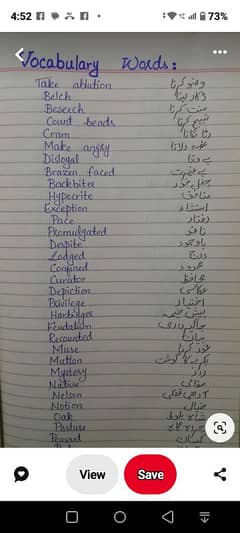 4:52
73%
Vocabulary Words:
Take ablution وضو کرنا
Belch ڈکار لینا
Beseech منت کرنا
Count beads تسبیح کرنا
Cram رٹا لگانا
Make angry غصہ دلانا
Disloyal بے وفا
Brazen faced بے غیرت
Backbiter چغل خور
Hypocrite منافق
Exception استثناء
Pace رفتار
Promulgated نافذ
Despite باوجود
Lodged درج
Confined محدود
Curator محافظ
Depiction عکاسی
Privilege اختیار
Harbinger پیش خیمہ
Feudalism جاگیرداری
Recounted بیان کیا
Muse غور کرنا
Mutton بکرے کا گوشت
Mystery راز
Native مقامی
Nelson
Notion خیال
Oak شاہ بلوط
Pasture چراگاہ
Peasant کسان
View
Save